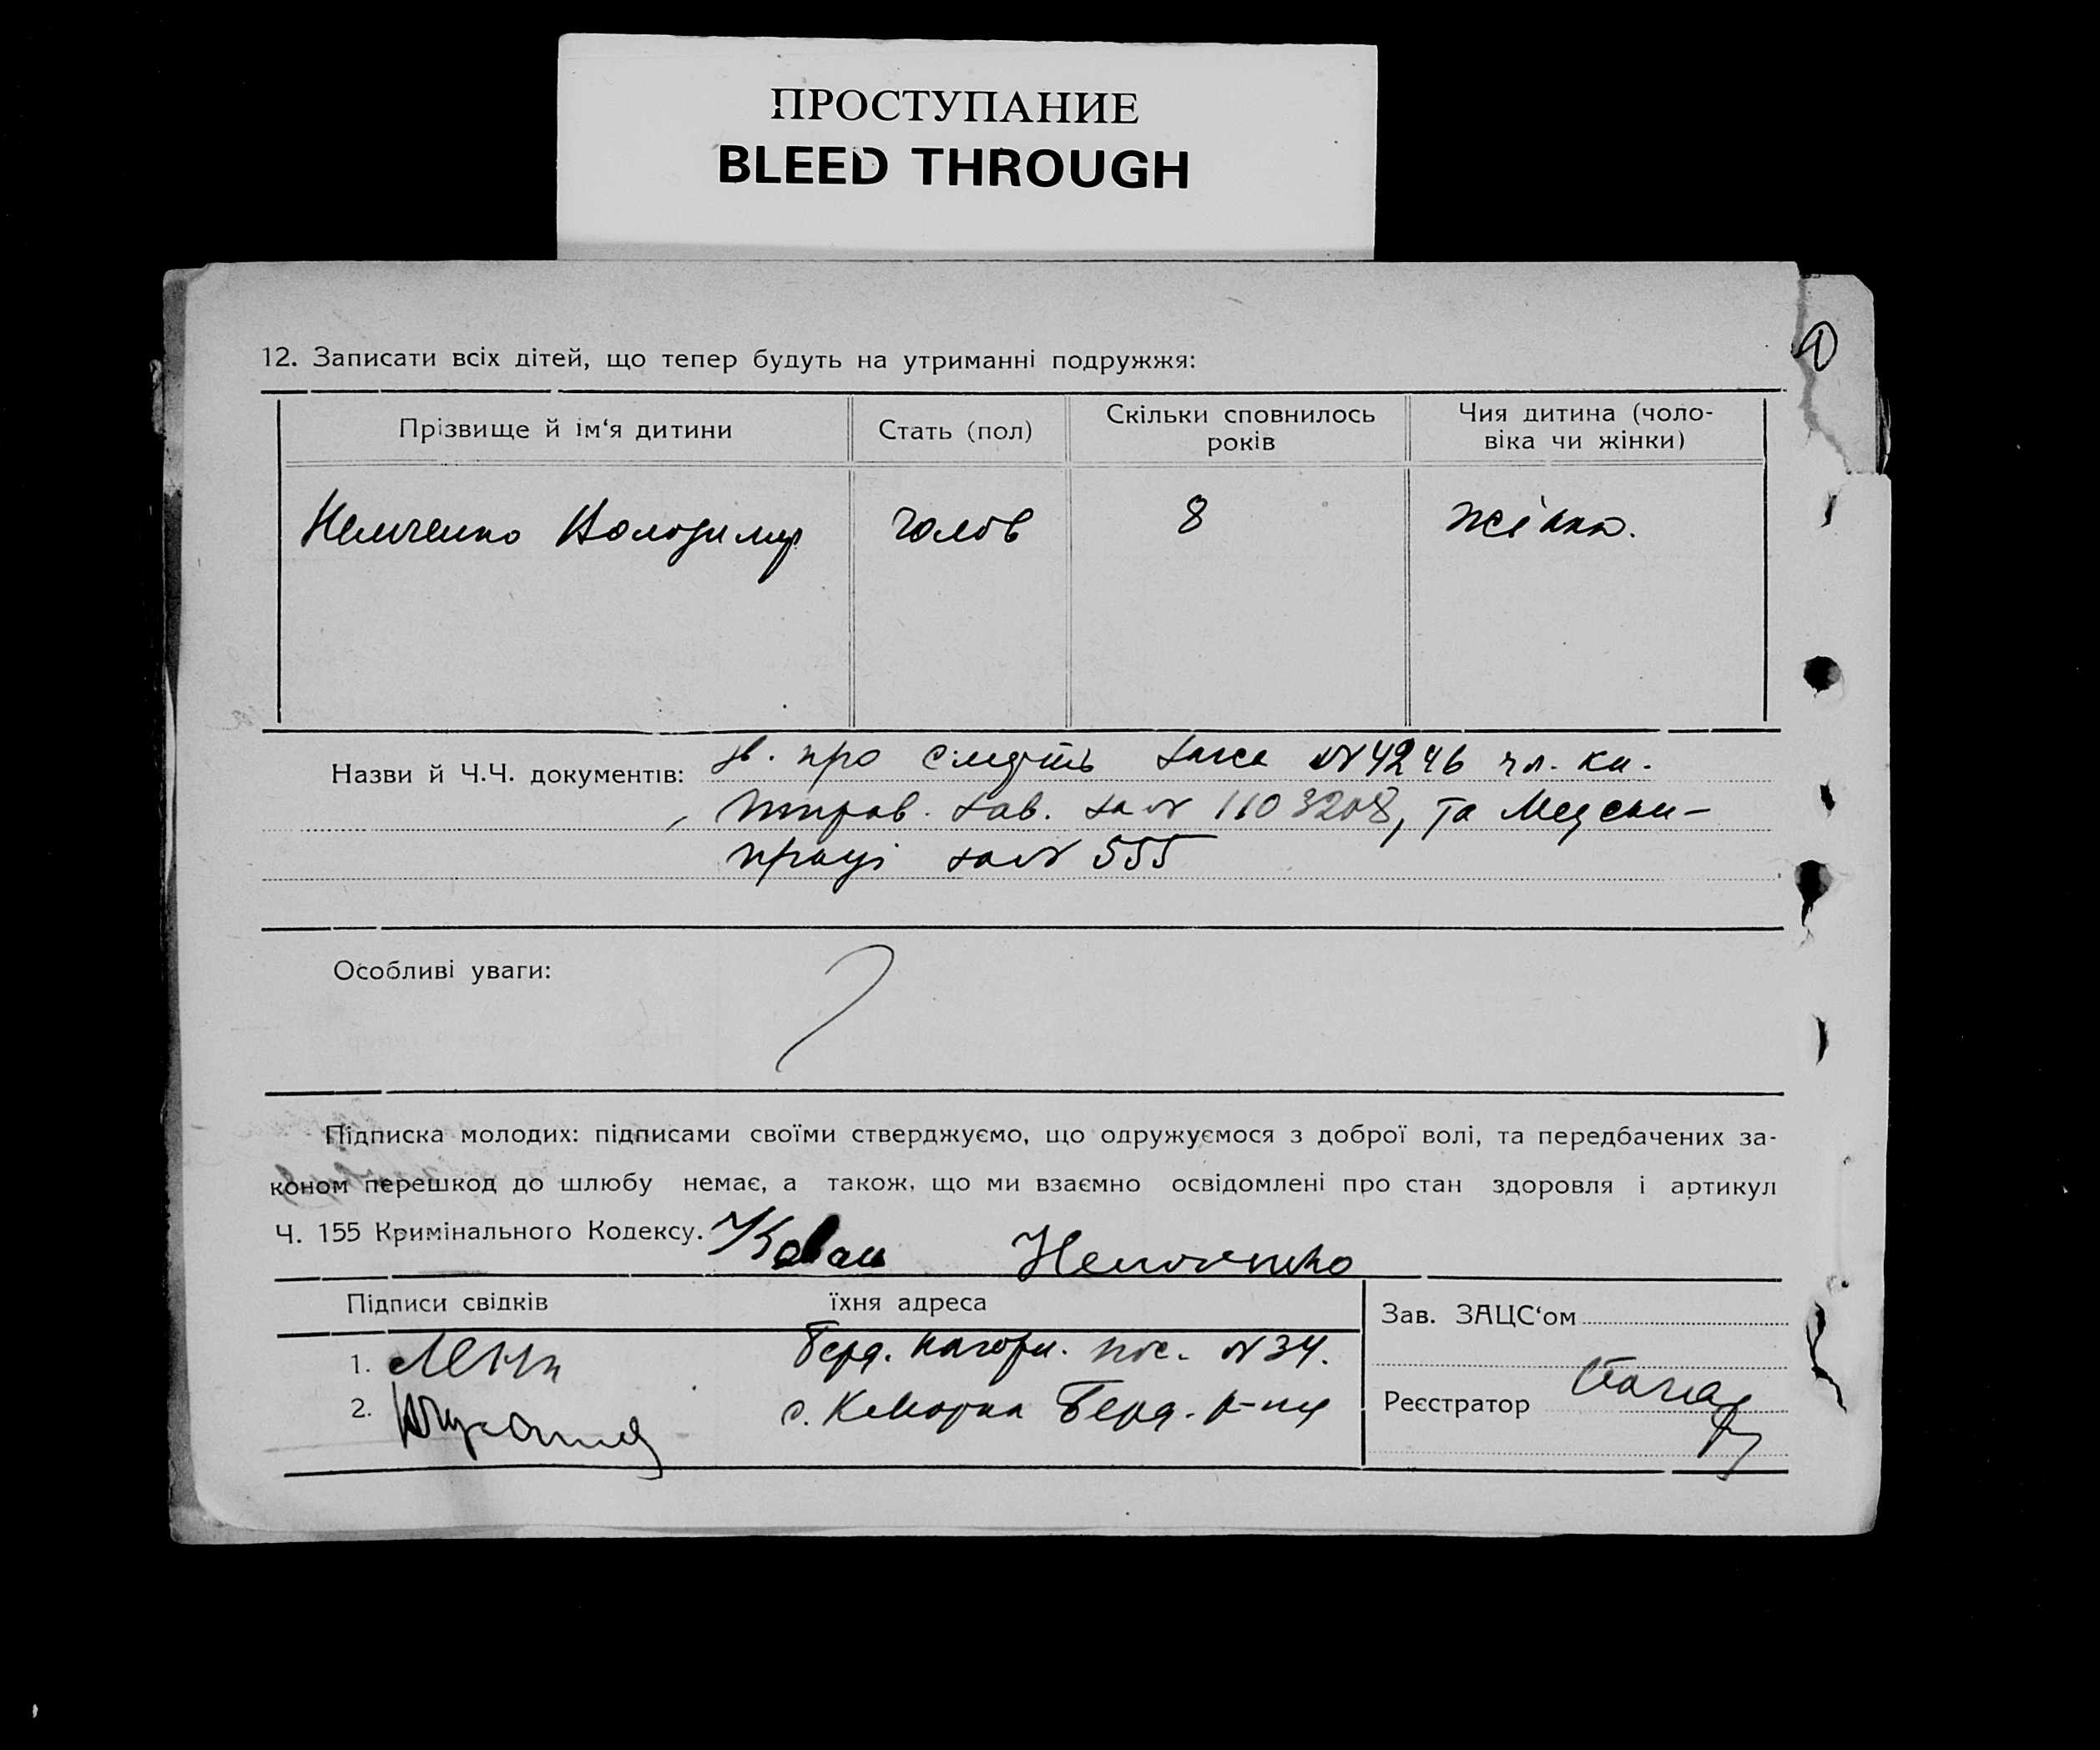 ПРОСТУПАНИЕ
BLEED THROUGH
1
12. Записати всіх дітей, що тепер будуть на утриманні подружжя:
Прізвище й ім‘я дитини Стать (пол) Скільки сповнилось років Чия дитина (чоло-віка чи жінки)
Немченко Володимир чолов 8 жінки.
Назви й Ч.Ч. документів: про смерть №4246 чл. кн.
110 3208, та
праці за№ 555
Особливі уваги:
Підписка молодих: підписами своїми стверджуємо, що одружуємося з доброї волі, та передбачених за-
коном перешкод до шлюбу немає, а також, що ми взаємно освідомлені про стан здоровля і артикул
Ч. 155 Кримінального Кодексу. Немченко
Підписи свідків їхня адреса Зав. ЗАЦС‘ом
1. Берд. Нагорн. пос. №34.
2. с. Берд. р-ну Реєстратор